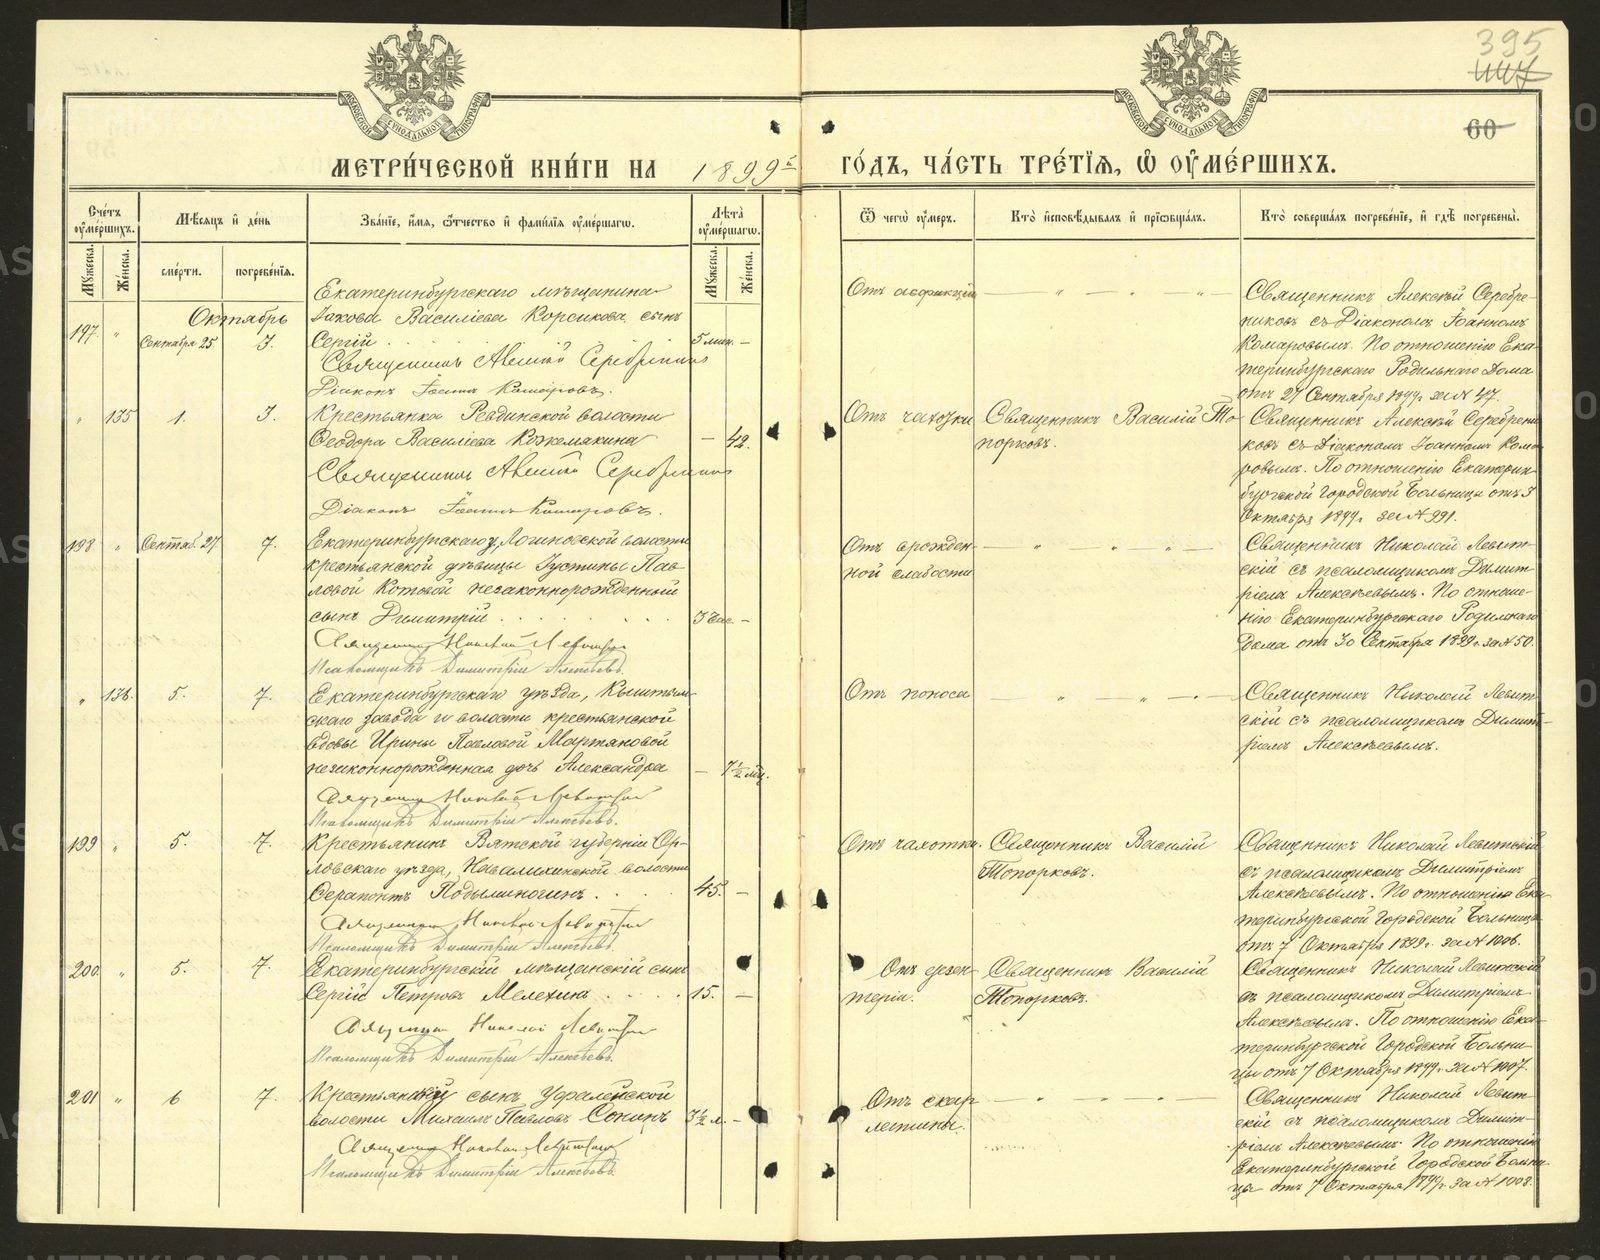 395
447
60
МОСКОВСКОЙ СѴНОДАЛЬНОЙ ТИПОГРАФІИ
МОСКОВСКОЙ СѴНОДАЛЬНОЙ ТИПОГРАФІИ
МЕТРИ́ЧЕСКОЙ КНИ́ГИ НА 1899й
ГО́ДЪ, ЧА́СТЬ ТРЕ́ТІѦ, Ѡ҆ ОУ҆МЕ́РШИХЪ.
Сче́тъ оу҆ме́ршихъ.
Мѣ́сяцъ и҆ де́нь
Зва́нїе, и҆́мя, ѻ҆́тчество и҆ фами́лїя оу҆ме́ршагѡ.
Лѣта̀ оу҆ме́ршагѡ.
Мꙋ́жеска.
Же́нска.
сме́рти.
погребе́нїя.
Мꙋ́жеска.
Же́нска.
Ѿ чегѡ̀ оу҆́меръ.
Кто̀ и҆сповѣ́дывалъ и҆ прїѡбща́лъ.
Кто̀ соверша́лъ погребе́нїе, и҆ гдѣ̀ погребены̀.
Октябрь
197 " Сентября 25 3.
Екатеринбургскаго мѣщанина
Іакова Василіева Корсикова сынъ
Сергій . . . . . 5 мин. –
Священникъ Алексѣй Серебрениковъ
Діаконъ Іоаннъ Комаровъ.
Отъ асфикціи — " — " — " —
Священникъ Алексѣй Серебре-
никовъ съ Діакономъ Іоанномъ
Комаровымъ. По отношенію Ека-
теринбургскаго Родильнаго Дома
отъ 27 Сентября 1899 г за № 47.
" 135 1. 3.
Крестьянка Ревдинской волости
Ѳеодора Василіева Кожемякина – 42.
Священникъ Алексѣй Серебрениковъ
Діаконъ Іоаннъ Комаровъ.
Отъ чахотки
Священникъ Василій То-
порковъ.
Священникъ Алексѣй Серебрени-
ковъ съ Діакономъ Іоанномъ Кома-
ровымъ. По отношенію Екатерин-
бургской Городской Больницы отъ 3
Октября 1899 г за № 991.
198 " Сентяб. 27 7.
Екатеринбургскаго у, Логиновской волости
крестьянской дѣвицы Іустины Пав-
ловой Котовой незаконнорожденный
сынъ Димитрій . . . . . 3 час –
Священникъ Николай Левитскій
Псаломщикъ Димитрій Алексѣевъ.
Отъ врожден-
ной слабости — " — " — " —
Священникъ Николай Левит-
скій съ псаломщикомъ Димит-
ріемъ Алексѣевымъ. По отноше-
нію Екатеринбургскаго Родильнаго
Дома отъ 30 Сентября 1899 г. за № 50.
" 136. 5. 7.
Екатеринбургскаго уѣзда, Кыштым-
скаго завода и волости крестьянской
вдовы Ирины Павловой Мартяновой
незаконнорожденная дочь Александра – 7½ мц.
Священникъ Николай Левитскій
Псаломщикъ Димитрій Алексѣевъ.
Отъ поноса — " — " — " —
Священникъ Николай Левит-
скій съ псаломщикомъ Димит-
ріемъ Алексѣевымъ.
199 " 5. 7.
Крестьянинъ Вятской губерніи Ор-
ловскаго уѣзда, волости
Серапіонъ . . 45. –
Священникъ Николай Левитскій
Псаломщикъ Димитрій Алексѣевъ.
Отъ чахотки.
Священникъ Василій
Топорковъ.
Священникъ Николай Левитскій
съ псаломщикомъ Димитріемъ
Алексѣевымъ. По отношенію Ека-
теринбургской Городской Больницы
отъ 7 Октября 1899 г. за № 1006.
200 " 5. 7.
Екатеринбургскій мѣщанскій сынъ
Сергій Петровъ Мелехинъ . . . . 15. –
Священникъ Николай Левитскій
Псаломщикъ Димитрій Алексѣевъ.
Отъ дезен-
теріи.
Священникъ Василій
Топорковъ.
Священникъ Николай Левитскій
съ псаломщикомъ Димитріемъ
Алексѣевымъ. По отношенію Ека-
теринбургской Городской Больни-
цы отъ 7 Октября 1899 г. за № 1007.
201 " 6 7.
Крестьянскій сынъ Уфалейской
волости Михаилъ Павловъ Сокинъ 3½ л. –
Священникъ Николай Левитскій
Псаломщикъ Димитрій Алексѣевъ.
Отъ скар-
латины. — " — " — " —
Священникъ Николай Левит-
скій съ псаломщикомъ Димит-
ріемъ Алексѣевымъ. По отношенію
Екатеринбургской Городской Больни-
цы отъ 7 Октября 1899 г. за № 1008.